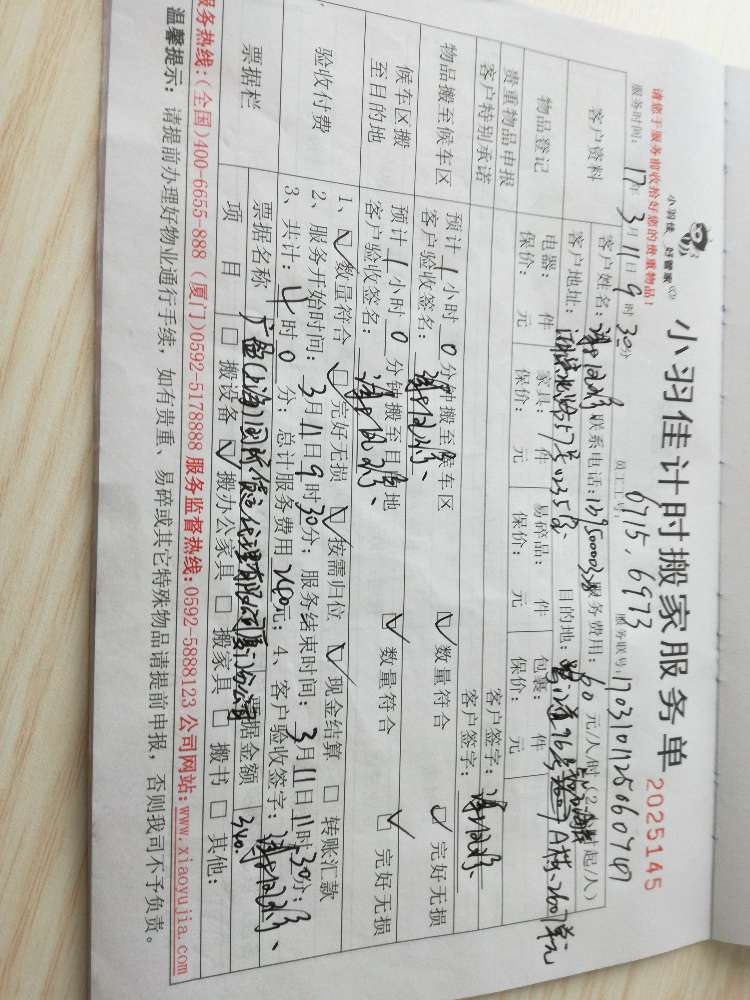 小羽佳 好管家
小羽佳计时搬家服务单
2025145
请您于服务前收拾好您的贵重物品!
服务时间: 17年3月11日9时30分
员工工号: 6715、6973
服务联号: 170310112506074
客户资料
客户姓名:
联系电话:
服务费用: 60元/人/时(2小时起/人)
客户地址:
目的地:
A栋、2607单元
物品登记
电器: 件 家具: 件 易碎品: 件 包裹: 件
保价: 元 保价: 元 保价: 元 保价: 元
贵重物品申报
客户签字:
客户特别承诺
客户签字:
物品搬至候车区
预计1小时0分钟搬至候车区
数量符合 完好无损
客户验收签名:
候车区搬至目的地
预计1小时0分钟搬至目的地
数量符合 完好无损
客户验收签名:
验收付费
1、数量符合 完好无损 按需归位 现金结算 转账汇款
2、服务开始时间: 3月11日9时30分; 服务结束时间: 3月11日11时30分;
3、共计: 4时0分; 总计服务费用240元; 4、客户验收签字:
票据栏
票据名称
广盈(上海)国际信息代理有限公司厦门分公司
票据金额
340.
项目
搬设备 搬办公家具 搬家具 搬书 其他:
服务热线:(全国)400-6655-888 (厦门)0592-5178888 服务监督热线:0592-5888123 公司网站:www.xiaoyujia.com
温馨提示: 请提前办理好物业通行手续, 如有贵重、易碎或其它特殊物品请提前申报, 否则我司不予负责。